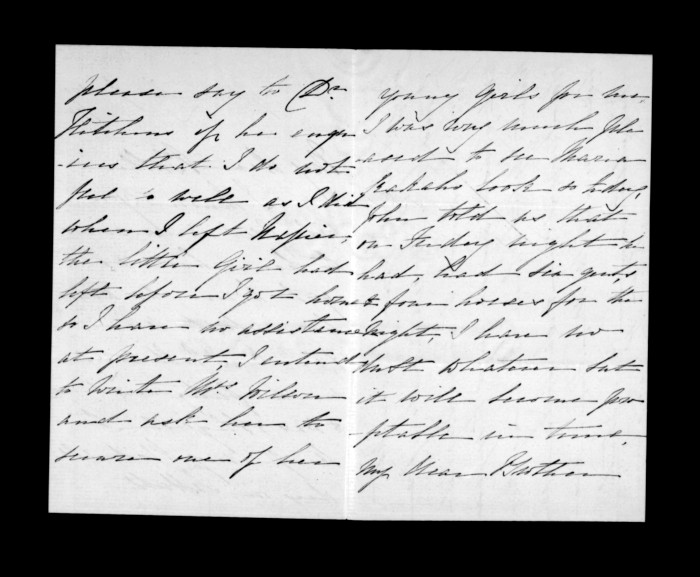 please say to Dr
Hitchens if he enqu
-ires that I do not
feel so well as I did
when I left Napier,
the little Girl had
left before I got home
so I have no assistance
at present, I intend
to write Mrs Wilson
and ask her to
secure one of her
young Girls for me,
I was very much ple
ased to see Maria
look so tidy,
John told us that
on Friday night he
had, had six guests
& four horses for the
night, I have no
doubt whatever but
it will become pro
fitable in time.
My Dear Brother